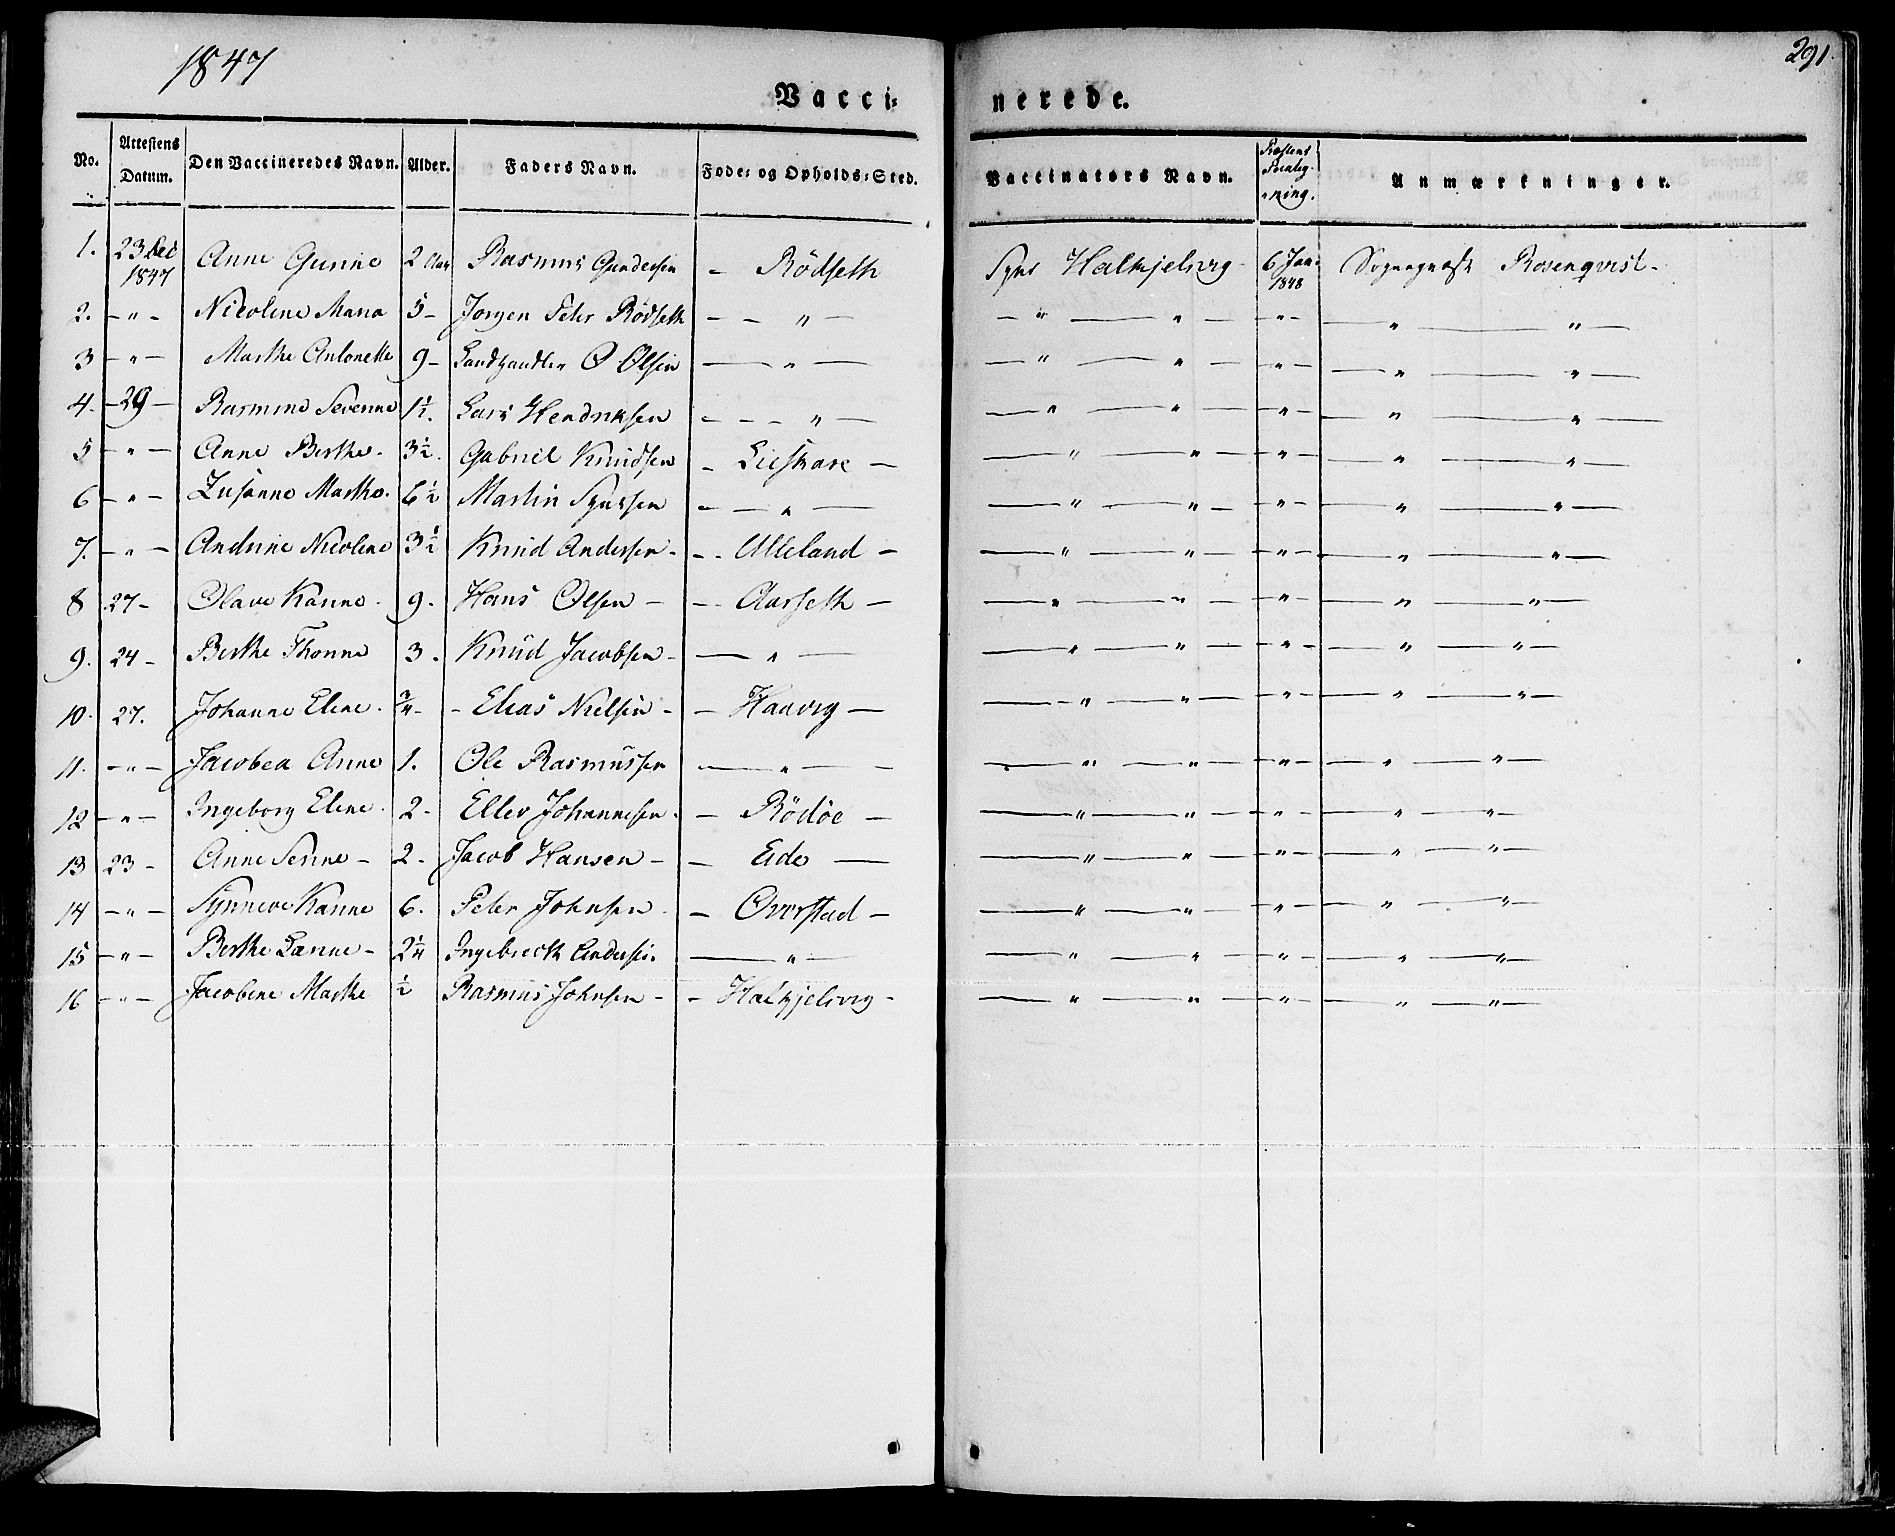 1847
291.
Vacci- nerede.
No. Attestens Datum. Den Vaccineredes Navn. Alder. Faders Navn. Føde- og Opholds-Sted. Vaccinators Navn. Anmærkninger.
1. 23 Dec 1847 Anne Gurine 2 Aar Rasmus Gundersen - Rödseth Syns Halkjelsvig 6 Jan. 1848 Rosenqvist.
2. - " - Nicoline Maria 5- Jørgen Peter Rödseth - - " - - " — " - "- — " — " —
3 - " - Marthe Antonette 9- Landhandler O Olsen — " — — " — " - "- — " — " —
4. -29- Rasmine Severine 1½. Lars Hendriksen - - - " — — " — " - "- — " — " —
5 - " - Anne Berthe. 3½. Gabriel Knudsen - Lieskare — — " — " - "- — " — " —
6 - " - Zusanne Marthe. 6½ Martin Synssen - — " — — " — " - "- — " — " —
7. - " - Andrine Nicoline 3½ Knud Andersen - -. Ulleland - — " — " - "- — " — " —
8 27- Olave Hanne. 9. Hans Olsen — -. Aarseth — — " — " - "- — " — " —
9. 24- Berthe Thonne 3. Knud Jacobsen - — " — — " — " - "- — " — " —
10. 27. Johanne Elene. ¾- - Elias Nielsen - - Haavig — — " — " - "- — " — " —
11. - " - Jacobea Anne 1. Ole Rasmussen — " — — " — " - "- — " — " —
12 - " - Ingeborg Elene. 2- Ellev Johannesen. - Rödöe — — " — " - "- — " — " —
13 23- Anne Serine - 2. Jacob Hansen - — Eide — — " — " - "- — " — " —
14 - " - Synneve Hanne 6. Peter Johnsen - Overstad — — " — " - "- — " — " —
15 - " - Berthe Lanne - 2¼ Ingebrecth Andersen. — " — — " — " - "- — " — " —
16 - " - Jacobine Marthe ½ Rasmus Johnsen - - Halkjelsvig - — " — " - "- — " — " —